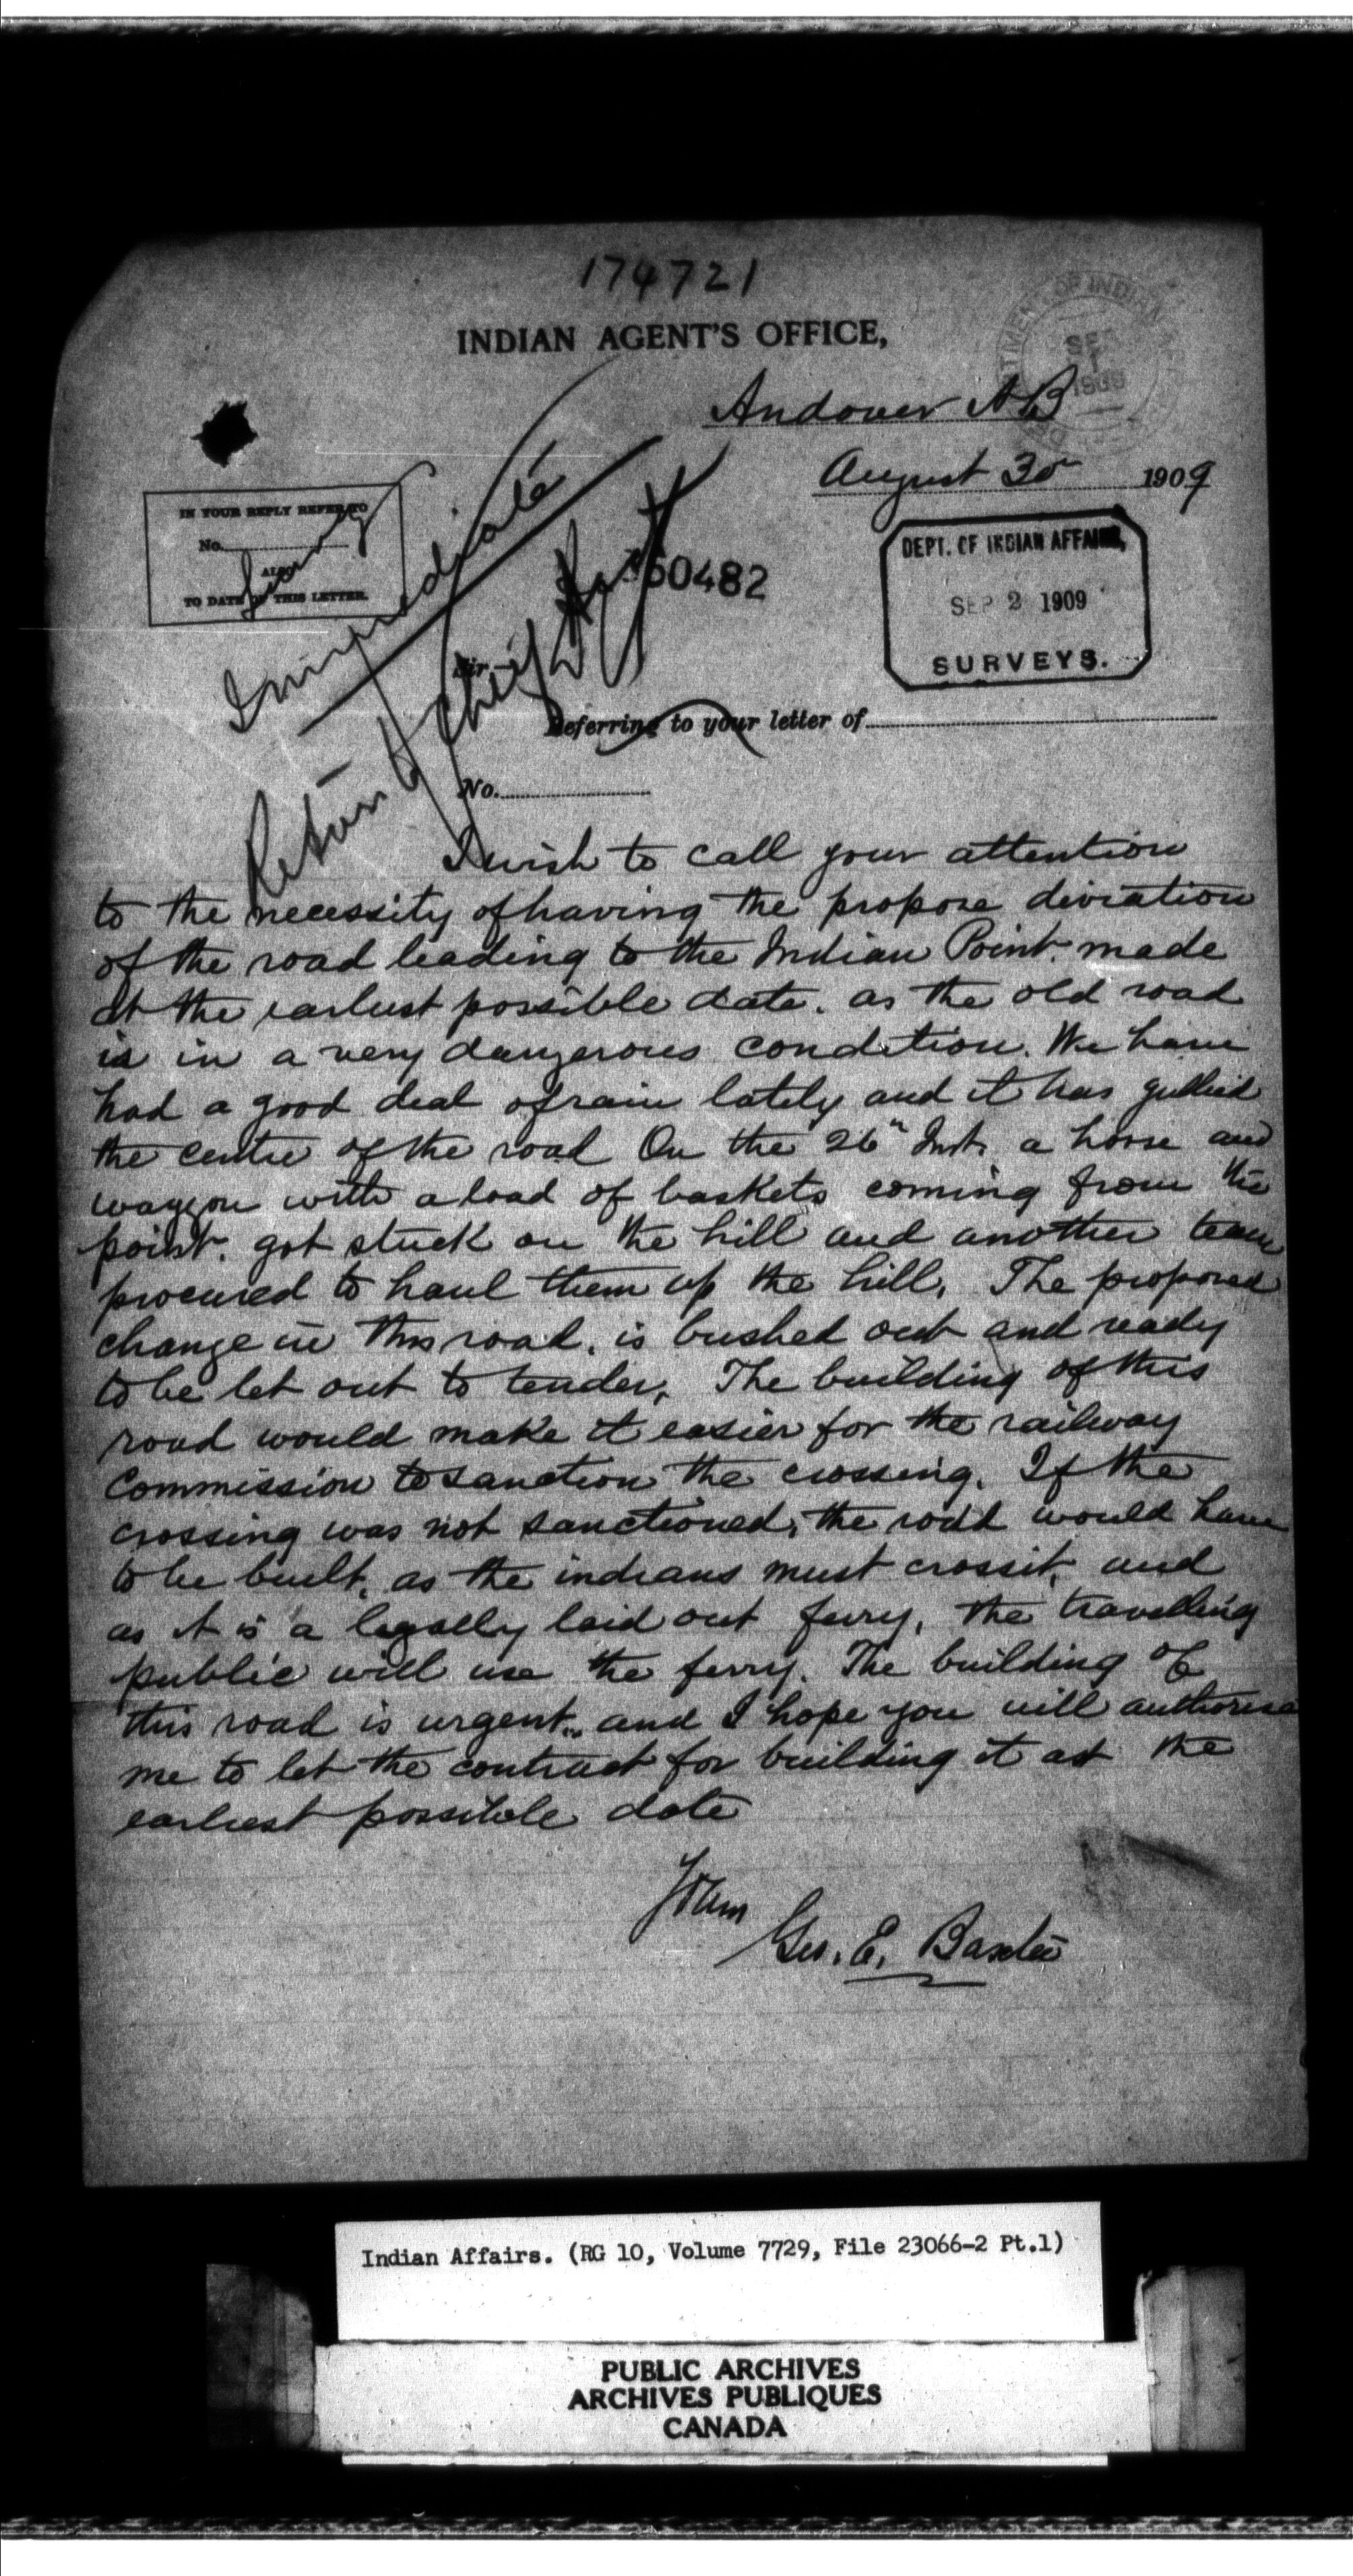 174721
INDIAN AGENT'S OFFICE,
DEPARTMENT OF INDIAN
SEP
1
1909
Andover NB
August 30 1909
IN YOUR REPLY REFER TO
No.
ALSO
TO DATE OF THIS LETTER.
Survey
Immediate
Return to Chief
360482
DEPT. OF INDIAN AFFAIRS,
SEP 2 1909
SURVEYS.
Sir,—
Referring to your letter of
No.
I wish to call your attention
to the necessity of having the propose diviation
of the road leading to the Indian Point. made
at the earlust possible date. as the old road
is in a very dangerous condition. We have
had a good deal of rain lately and it has gullied
the centre of the road On the 26" Inst. a horse and
waggon with a load of baskets coming from the
point. got stuck on the hill and another team
procured to haul them up the hill. The proposed
change in this road. is bushed out and ready
to be let out to tender. The building of this
road would make it easier for the railway
Commission to sanction the crossing. If the
crossing was not sanctioned, the road would have
to be built, as the indians must cross it, and
as it is a legally laid out ferry, the travelling
public will use the ferry. The building of
this road is urgent. and I hope you will authorise
me to let the contract for building it at the
earliest possible date
Yours
Geo. E. Baxter
Indian Affairs. (RG 10, Volume 7729, File 23066-2 Pt.1)
PUBLIC ARCHIVES
ARCHIVES PUBLIQUES
CANADA